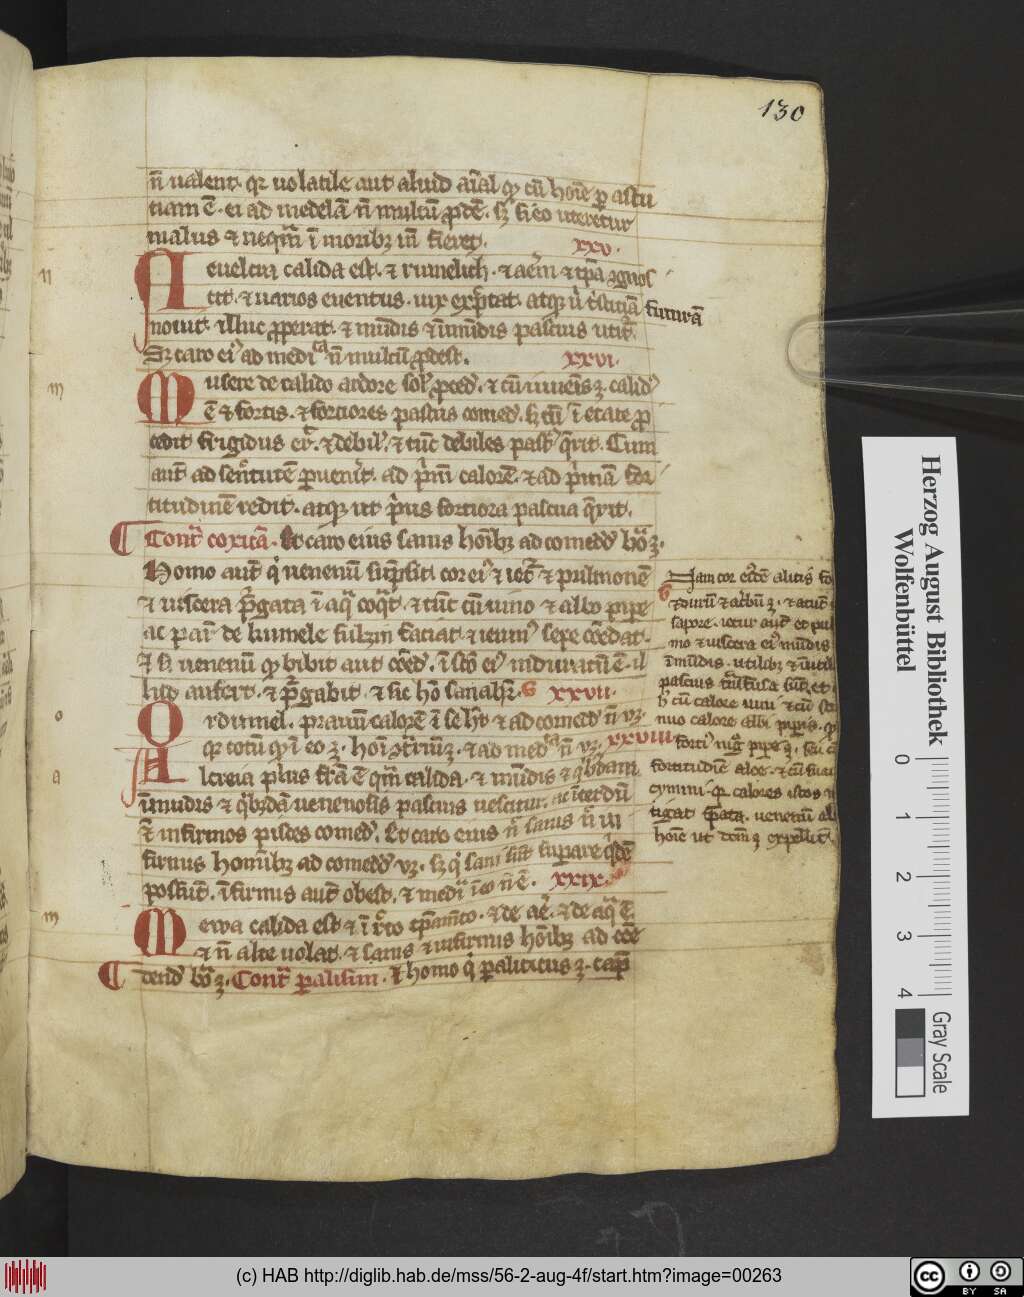 130
n̄ ualent. qr uolatile aut aliud aīal qd cū hoīe p astu
tiam ē. ei ad medelā n̄ multū ꝓdē. sꝫ si eo uteretur
malus & neqm̄ ī moribꝫ in fieret. xxv.
euelcra calida est. & rumelich. & aem &
cit. & uarios euentus. uix atqꝫ futurā
nouit. illuc ꝓperat. & mūdis & īmūdis pascuis utit᷑.
Sꝫ caro ei᷒ ad medicā n̄ multū ꝓdest. xxvi.
usere de calido ardore sol᷒ ꝓced. & cū iuueīs ꝫ. calid᷒
ē & fortis. & fortiores pascuis comed. h cū ī etate p
cedit frigidus er̄. & debil᷒. & tūc debiles past᷒ q̄rit. Cum
aut̄ ad senectutē puenit. ad p̄m calorē. & ad p̄mā for
titudinē redit. atqꝫ ut p̄us fortiora pascua q̄rit.
Cont̄ coxicā. Et caro eius sanis hoībꝫ ad comedd bōꝫ.
Homo aut̄ q̄ uenenū sūpsit. cor ei᷒ & iec᷒ & pulmonē
& uiscera p̄gata ī aq̄ coq̄t. & tūc cū uino & albo pipe
ac par̄ de kumele sulzin faciat. & ieiun᷒ sepe cōedat.
& si uenenū qd bibit aut cōed. ī stō ei᷒ induratū ē. il
lud aufert. & p̄gabit. & sic hō sanabit᷑. xxvii.
rdumel. prauū calorē ī se ht̄. & ad comedd n̄ uꝫ.
qr totū qd ī eo ꝫ. hoī ꝫ. & ad medcā n̄ uꝫ. xxviii
lcreia pl᷒us frā ē qm̄ calida. & mūdis & q̄bdam
īmūdis & q̄bꝫdā uenenosis pascuis uescitur. ac īterdū
& infirmos pisces comed. Et caro eius n̄ sanis n̄ in
firmis hominibꝫ ad comedd uꝫ. sꝫ q̄ sani sūt supare q̄dē
possūt. īfirmis aut obest. & medīa in eo n̄ ē. xxix.
ewa calida est & ī r̄cto tp̄amīto. & de aere. & de aq̄ ē
& n̄ alte uolat. & sanis & infirmis hoībꝫ ad cōe
dend bōꝫ. Cont̄ palisim. Et homo q̄ paliticus ꝫ. cap̄
Nam cor eiꝰdē alitis fo
& durū & acerbū ꝫ. & acut
sapore. iecur aut et pul
mo & uiscera ei᷒ mūdis
īmūdis. utilibꝫ & īutil
pascuis trāsfusa sūt. et
h cū calore uini & cū
nuo calore albi piperis.
forti᷒ nigro pipe ꝫ. seu c
fortitudīe aloe. & cū suaui
cymini. qr calores istos
tigat tp̄ata. uenenū ab
hoīe ut dcm ꝫ expellit.
n
m
o
a
m
Herzog August Bibliothek
Wolfenbüttel
0 1 2 3 4
Gray Scale
(c) HAB http://diglib.hab.de/mss/56-2-aug-4f/start.htm?image=00263
cc BY SA